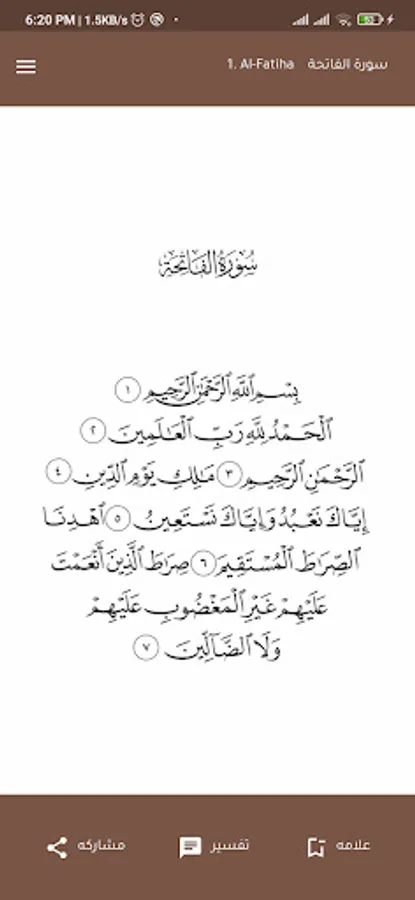 6:20 PM | 1.5KB/s
1. Al-Fatiha سورة الفاتحة
سُورَةُ الْفَاتِحَةِ
بِسْمِ ٱللَّهِ ٱلرَّحْمَٰنِ ٱلرَّحِيمِ ١
ٱلْحَمْدُ لِلَّهِ رَبِّ ٱلْعَٰلَمِينَ ٢
ٱلرَّحْمَٰنِ ٱلرَّحِيمِ ٣ مَٰلِكِ يَوْمِ ٱلدِّينِ ٤
إِيَّاكَ نَعْبُدُ وَإِيَّاكَ نَسْتَعِينُ ٥ ٱهْدِنَا
ٱلصِّرَٰطَ ٱلْمُسْتَقِيمَ ٦ صِرَٰطَ ٱلَّذِينَ أَنْعَمْتَ
عَلَيْهِمْ غَيْرِ ٱلْمَغْضُوبِ عَلَيْهِمْ
وَلَا ٱلضَّآلِّينَ ٧
علامه تفسير مشاركه